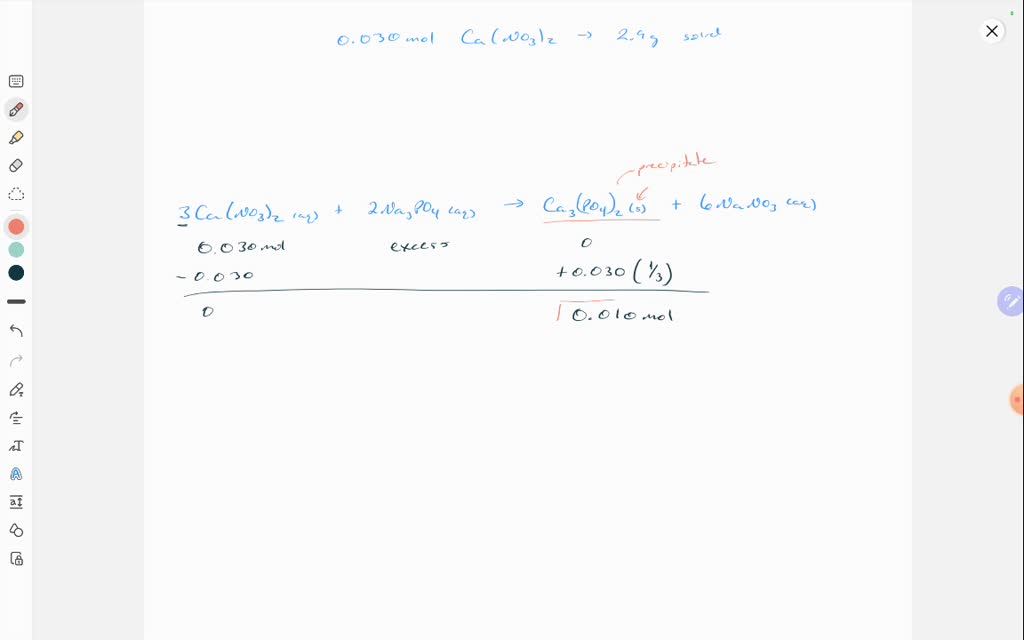 0.030 mol Ca(NO3)2 → 2.9g solid
precipitate
3Ca(NO3)2 (aq) + 2Na3PO4 (aq) → Ca3(PO4)2 (s) + 6NaNO3 (aq)
0.030 mol excess 0
- 0.030 +0.030 (1/3)
0 0.010 mol